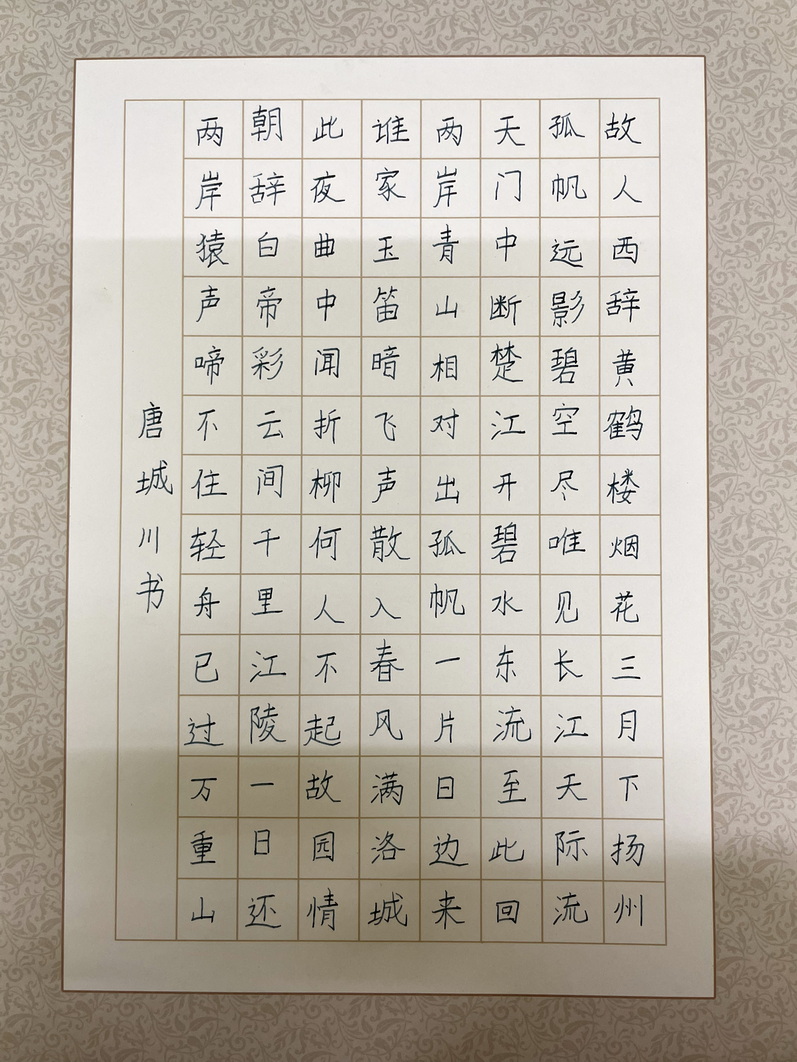 故人西辞黄鹤楼烟花三月下扬州
孤帆远影碧空尽唯见长江天际流
天门中断楚江开碧水东流至此回
两岸青山相对出孤帆一片日边来
谁家玉笛暗飞声散入春风满洛城
此夜曲中闻折柳何人不起故园情
朝辞白帝彩云间千里江陵一日还
两岸猿声啼不住轻舟已过万重山
唐城川书